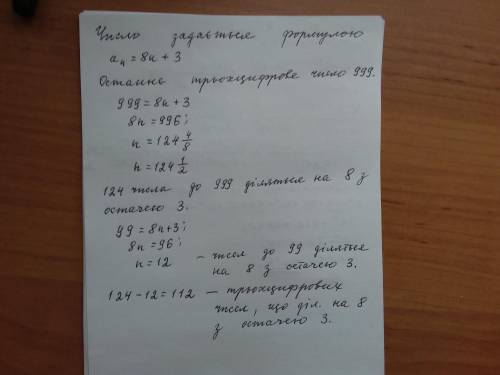 Число задається формулою
aₙ = 8n + 3
Останнє трьохцифрове число 999.
999 = 8n + 3
8n = 996;
n = 124 4/8
n = 124 1/2
124 числа до 999 діляться на 8 з
остачею 3.
99 = 8n+3;
8n = 96;
n = 12 – чисел до 99 діляться
на 8 з остачею 3.
124 - 12 = 112 – трьохцифрових
чисел, що діл. на 8
з остачею 3.